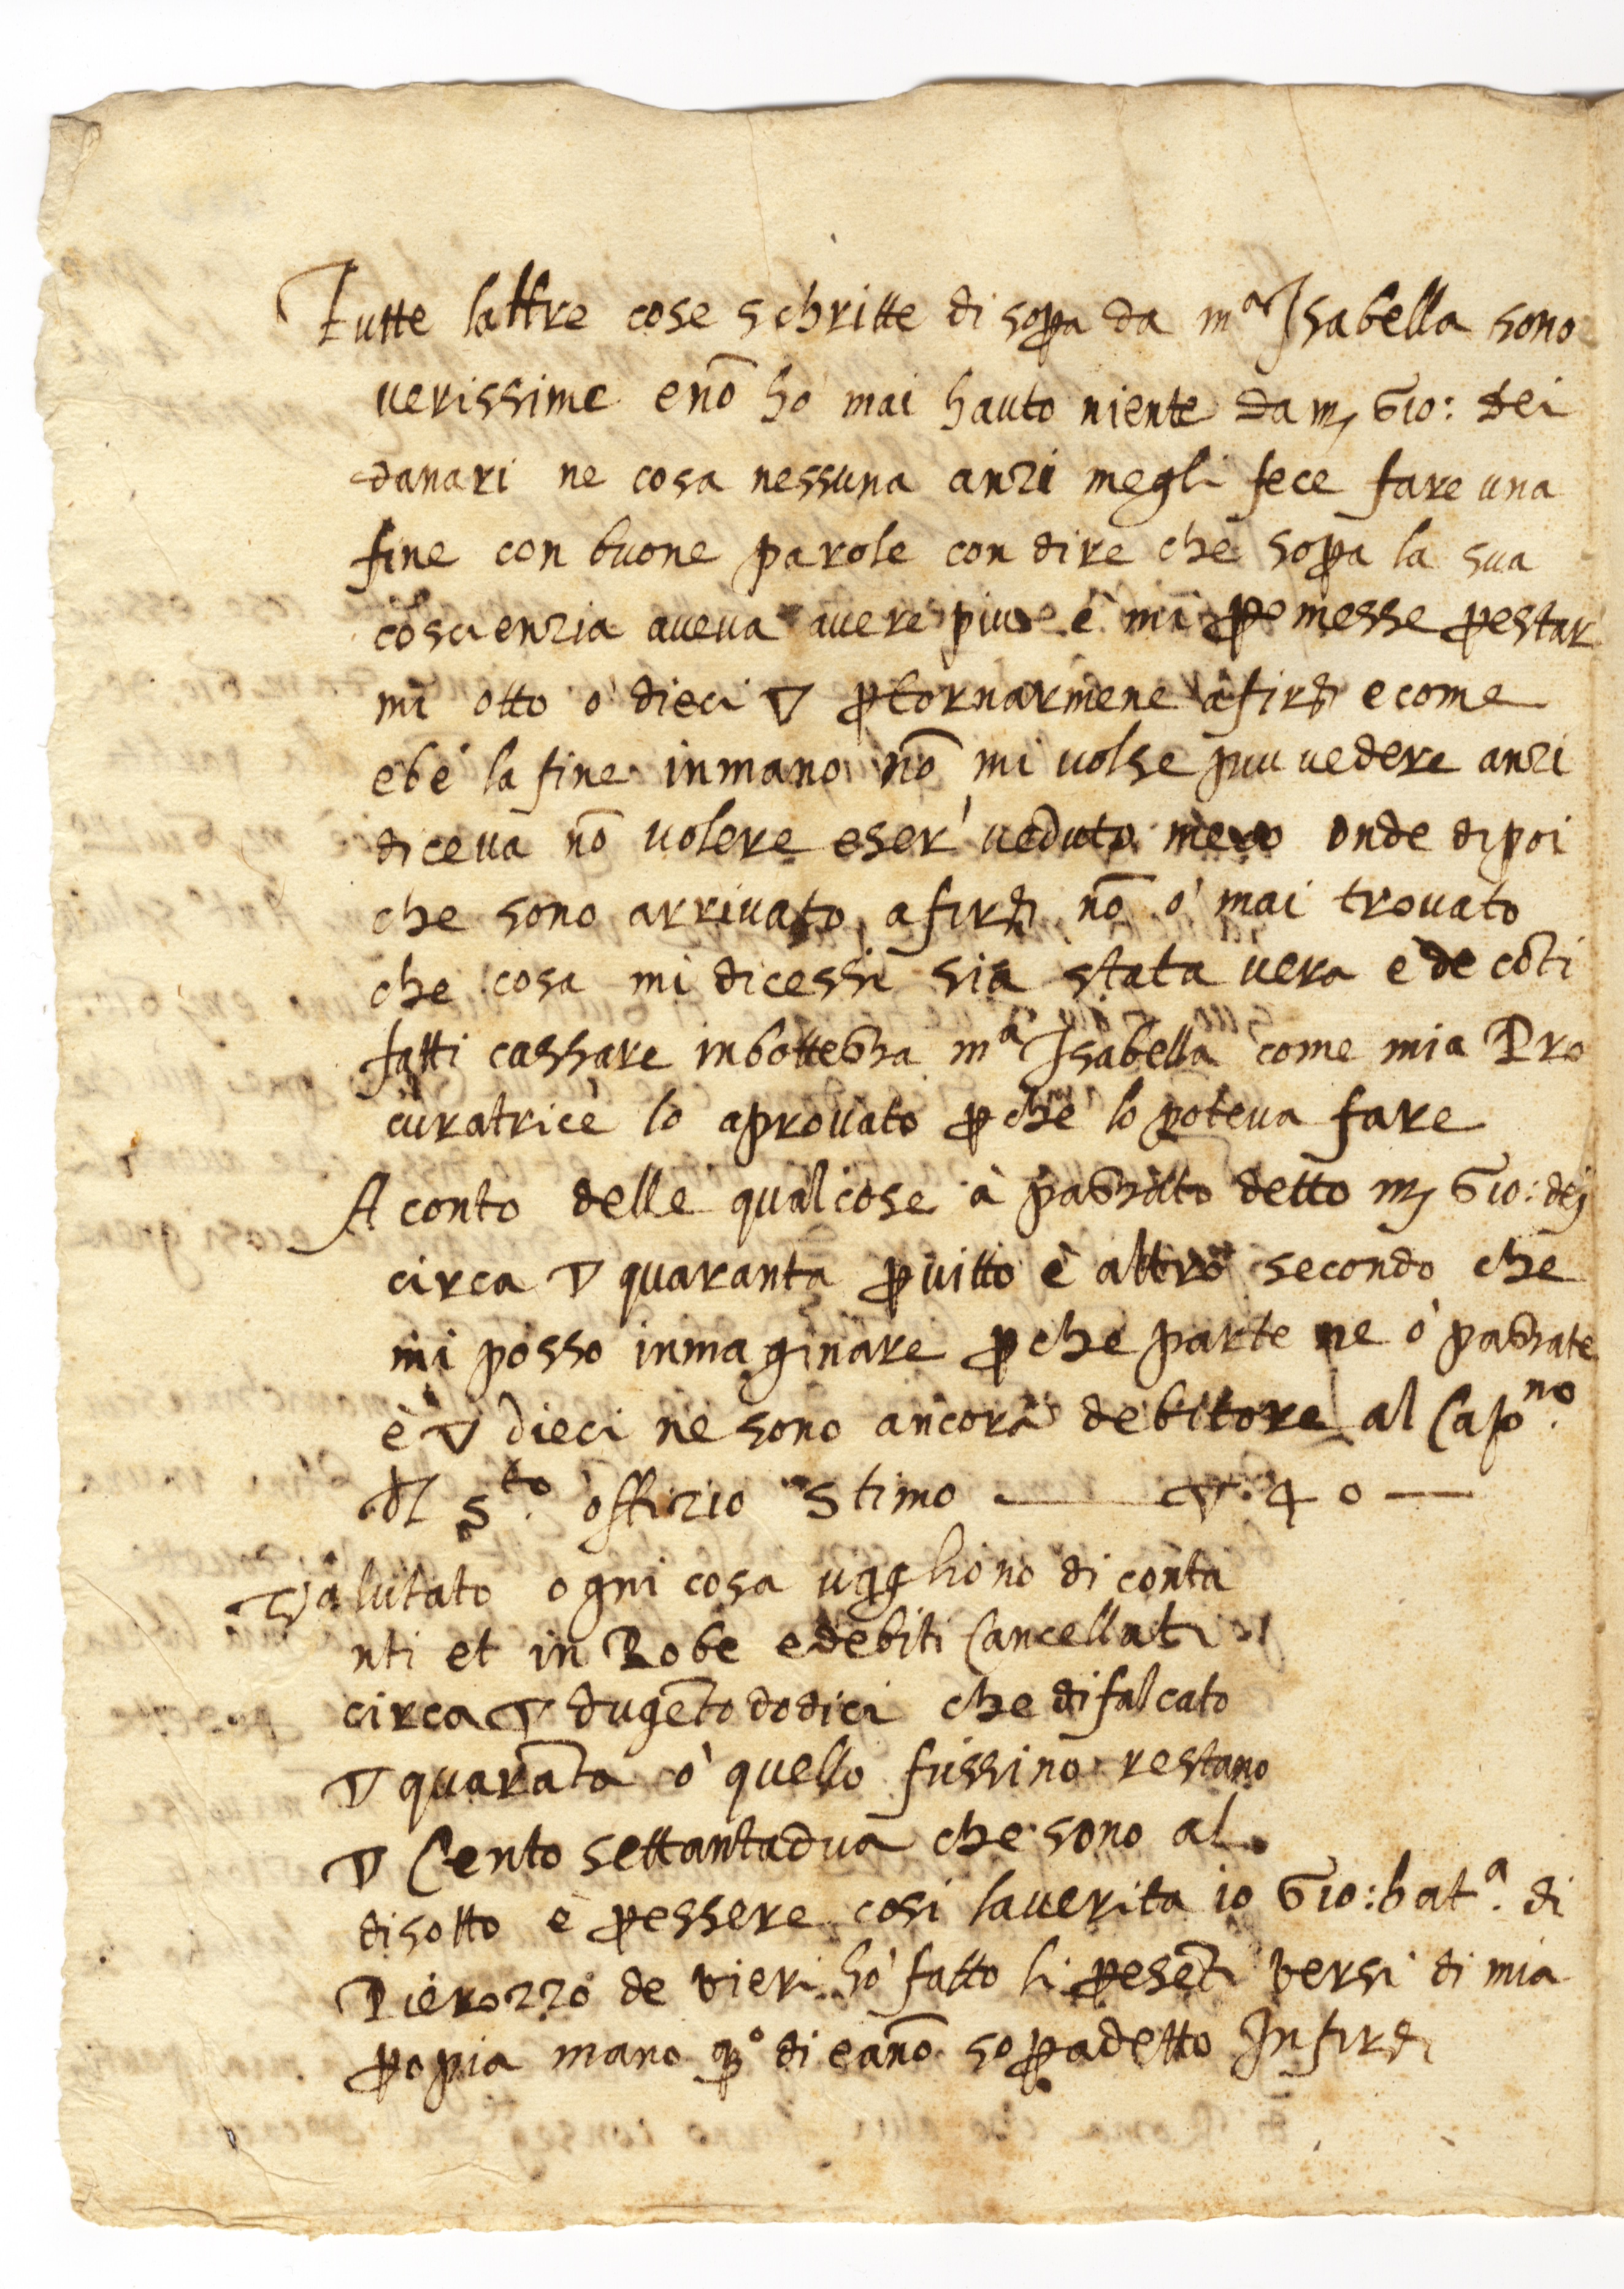 Tutte laltre cose schritte di sopa da mᵃ Isabella sono
verissime e nō ho mai hauto niente da mʃ Gio: dei
danari ne cosa nessuna anzi megli fece fare una
fine con buone parole con dire che sopa la sua
cōscienzia aveva avere piu e è mi pomesse pestar
mi otto o dieci ▽ ptornarmene afirz̄e e come
ebe la fine inmano nō mi volse piu vedere anzi
diceva nō volere eser veduto onde dipoi
che sono arrivato a firz̄e nō ò mai trovato
che cosa mi dicessi sia stata vera e de cōti
fatti cassare inbottegha mᵃ Isabella come mia Pro
curatrice lo aprovato pche lo poteva fare
A conto delle qual cose à paghato detto mʃ Gio: dej
circa ▽ quaranta pvitto è altro secondo che
mi posso inmaginare pche parte ne ò paghate
è ▽ dieci ne sono ancora debitore al Capⁿᵒ.
dl Sᵗᵒ. offizio Stimo ——— ▽. 40 —
Valutato ogni cosa vagliono di conta
nti et in Robe e debiti Cancellati
circa ▽ dugēto dodici che difalcato
▽ quarāta o quello fussino restano
▽ Cento settantadua che sono al
disotto e pessere cosi laverita io Gio: batᵃ. di
Pierozzo de vieri hò fatto li pesēti versi di mia
popia mano qº di e anō sopadetto In firz̄e